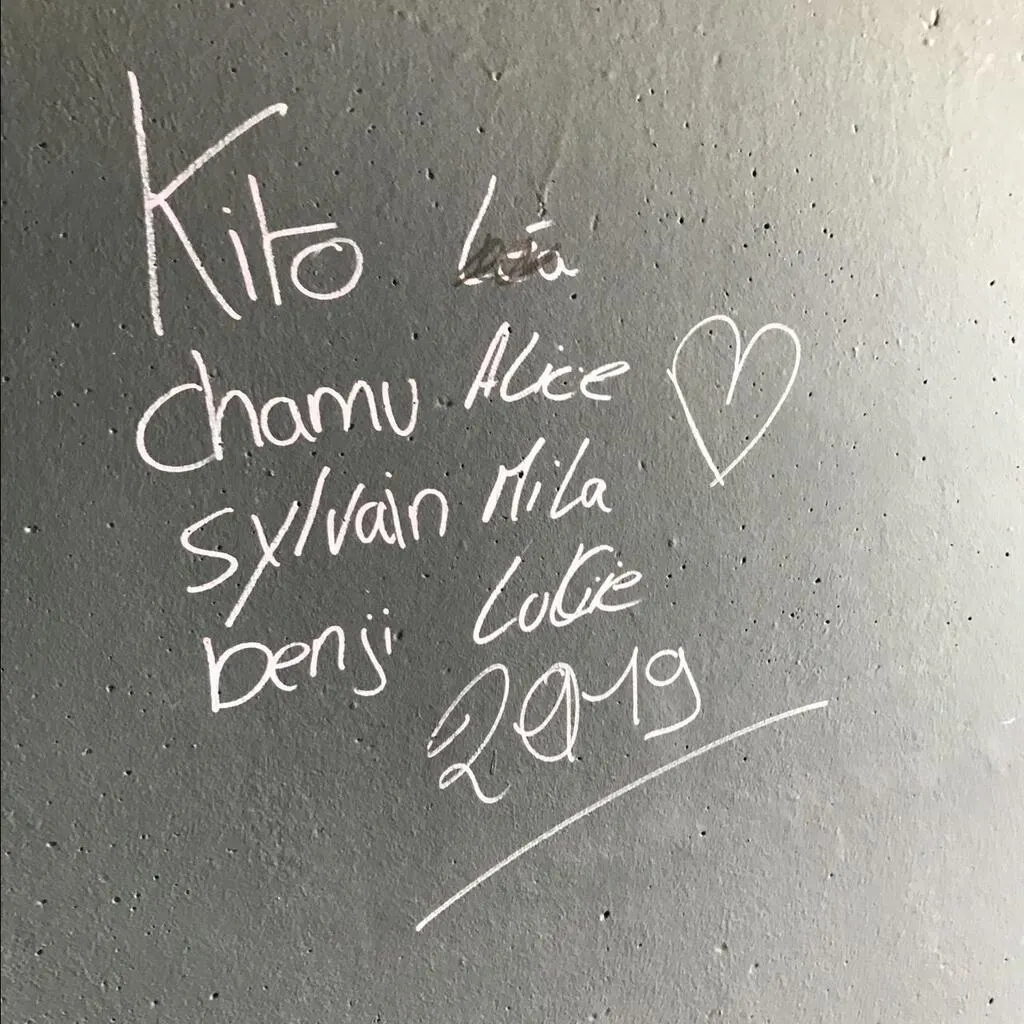 Kito
chamu Alice
sylvain Mila
benji Lukie
2019